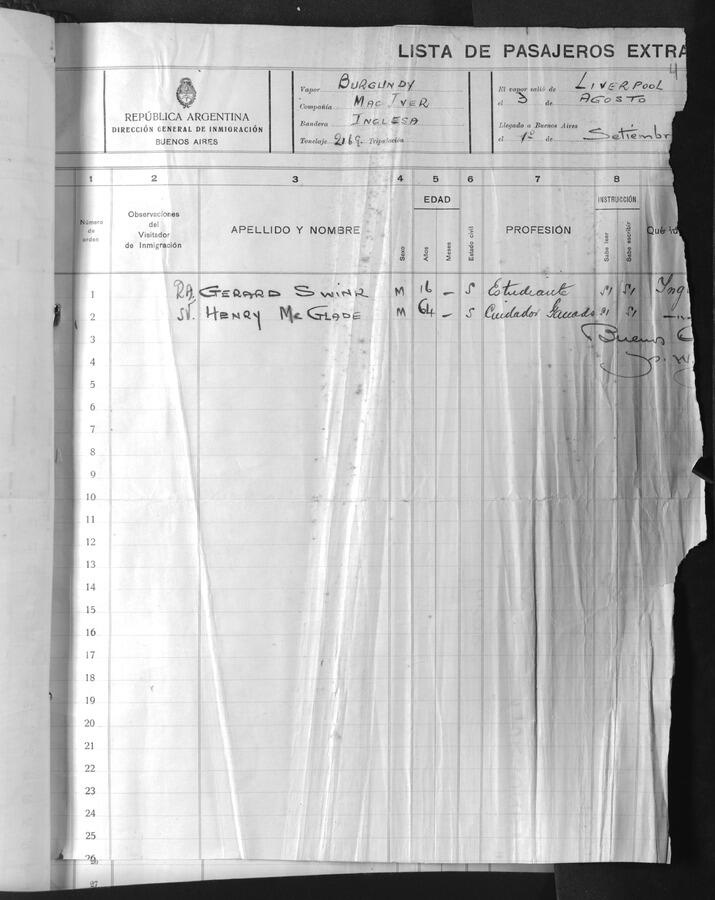 LISTA DE PASAJEROS EXTRA
4
REPÚBLICA ARGENTINA
DIRECCIÓN GENERAL DE INMIGRACIÓN
BUENOS AIRES
Vapor BURGUNDY
Compañía MAC IVER
Bandera INGLESA
Tonelaje 2169. Tripulación
El vapor salió de LIVERPOOL
el 3 de AGOSTO
Llegado a Buenos Aires
el 1º de Setiembr
1 2 3 4 5 6 7 8
Número de orden
Observaciones del Visitador de Inmigración
APELLIDO Y NOMBRE
Sexo
EDAD
Años
Meses
Estado civil
PROFESIÓN
INSTRUCCIÓN
Sabe leer
Sabe escribir
Qué
1 RA. GERARD SWINK M 16 — S Estudiante SI SI Ing
2 SV. HENRY McGLADE M 64 — S Cuidador Ganado SI SI —
3 Buenos
4
5
6
7
8
9
10
11
12
13
14
15
16
17
18
19
20
21
22
23
24
25
26
27